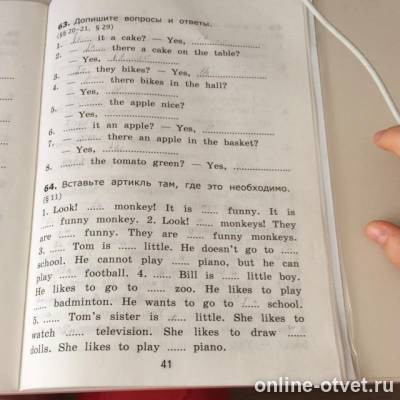 63. Допишите вопросы и ответы.
(§§ 20–21, § 29)
1. ...... it a cake? — Yes, ..................
2. — ...... there a cake on the table?
— Yes, ..................
3. — ...... they bikes? — Yes, ..................
4. — ...... there bikes in the hall?
— Yes, ..................
5. — ...... the apple nice?
— Yes, ..................
6. — ...... it an apple? — Yes, ..................
7. — ...... there an apple in the basket?
— Yes, ..................
8. — ...... the tomato green? — Yes, ..................
64. Вставьте артикль там, где это необходимо.
(§ 11)
1. Look! ...... monkey! It is ...... funny. It is
...... funny monkey. 2. Look! ...... monkeys! They
are ...... funny. They are ...... funny monkeys.
3. ...... Tom is ...... little. He doesn't go to ......
school. He cannot play ...... piano, but he can
play ...... football. 4. ...... Bill is ...... little boy.
He likes to go to ...... zoo. He likes to play
...... badminton. He wants to go to ...... school.
5. ...... Tom's sister is ...... little. She likes to
watch ...... television. She likes to draw ......
dolls. She likes to play ...... piano.
41
online-otvet.ru